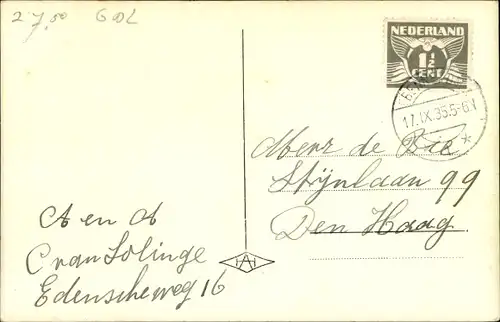 27,50 GDL
NEDERLAND
1½
CENT
17.IX.35.5-6N
Mevr de Bie
Stijnlaan 99
Den Haag.
A en A
C van Solinge
Edenscheweg 16
AH